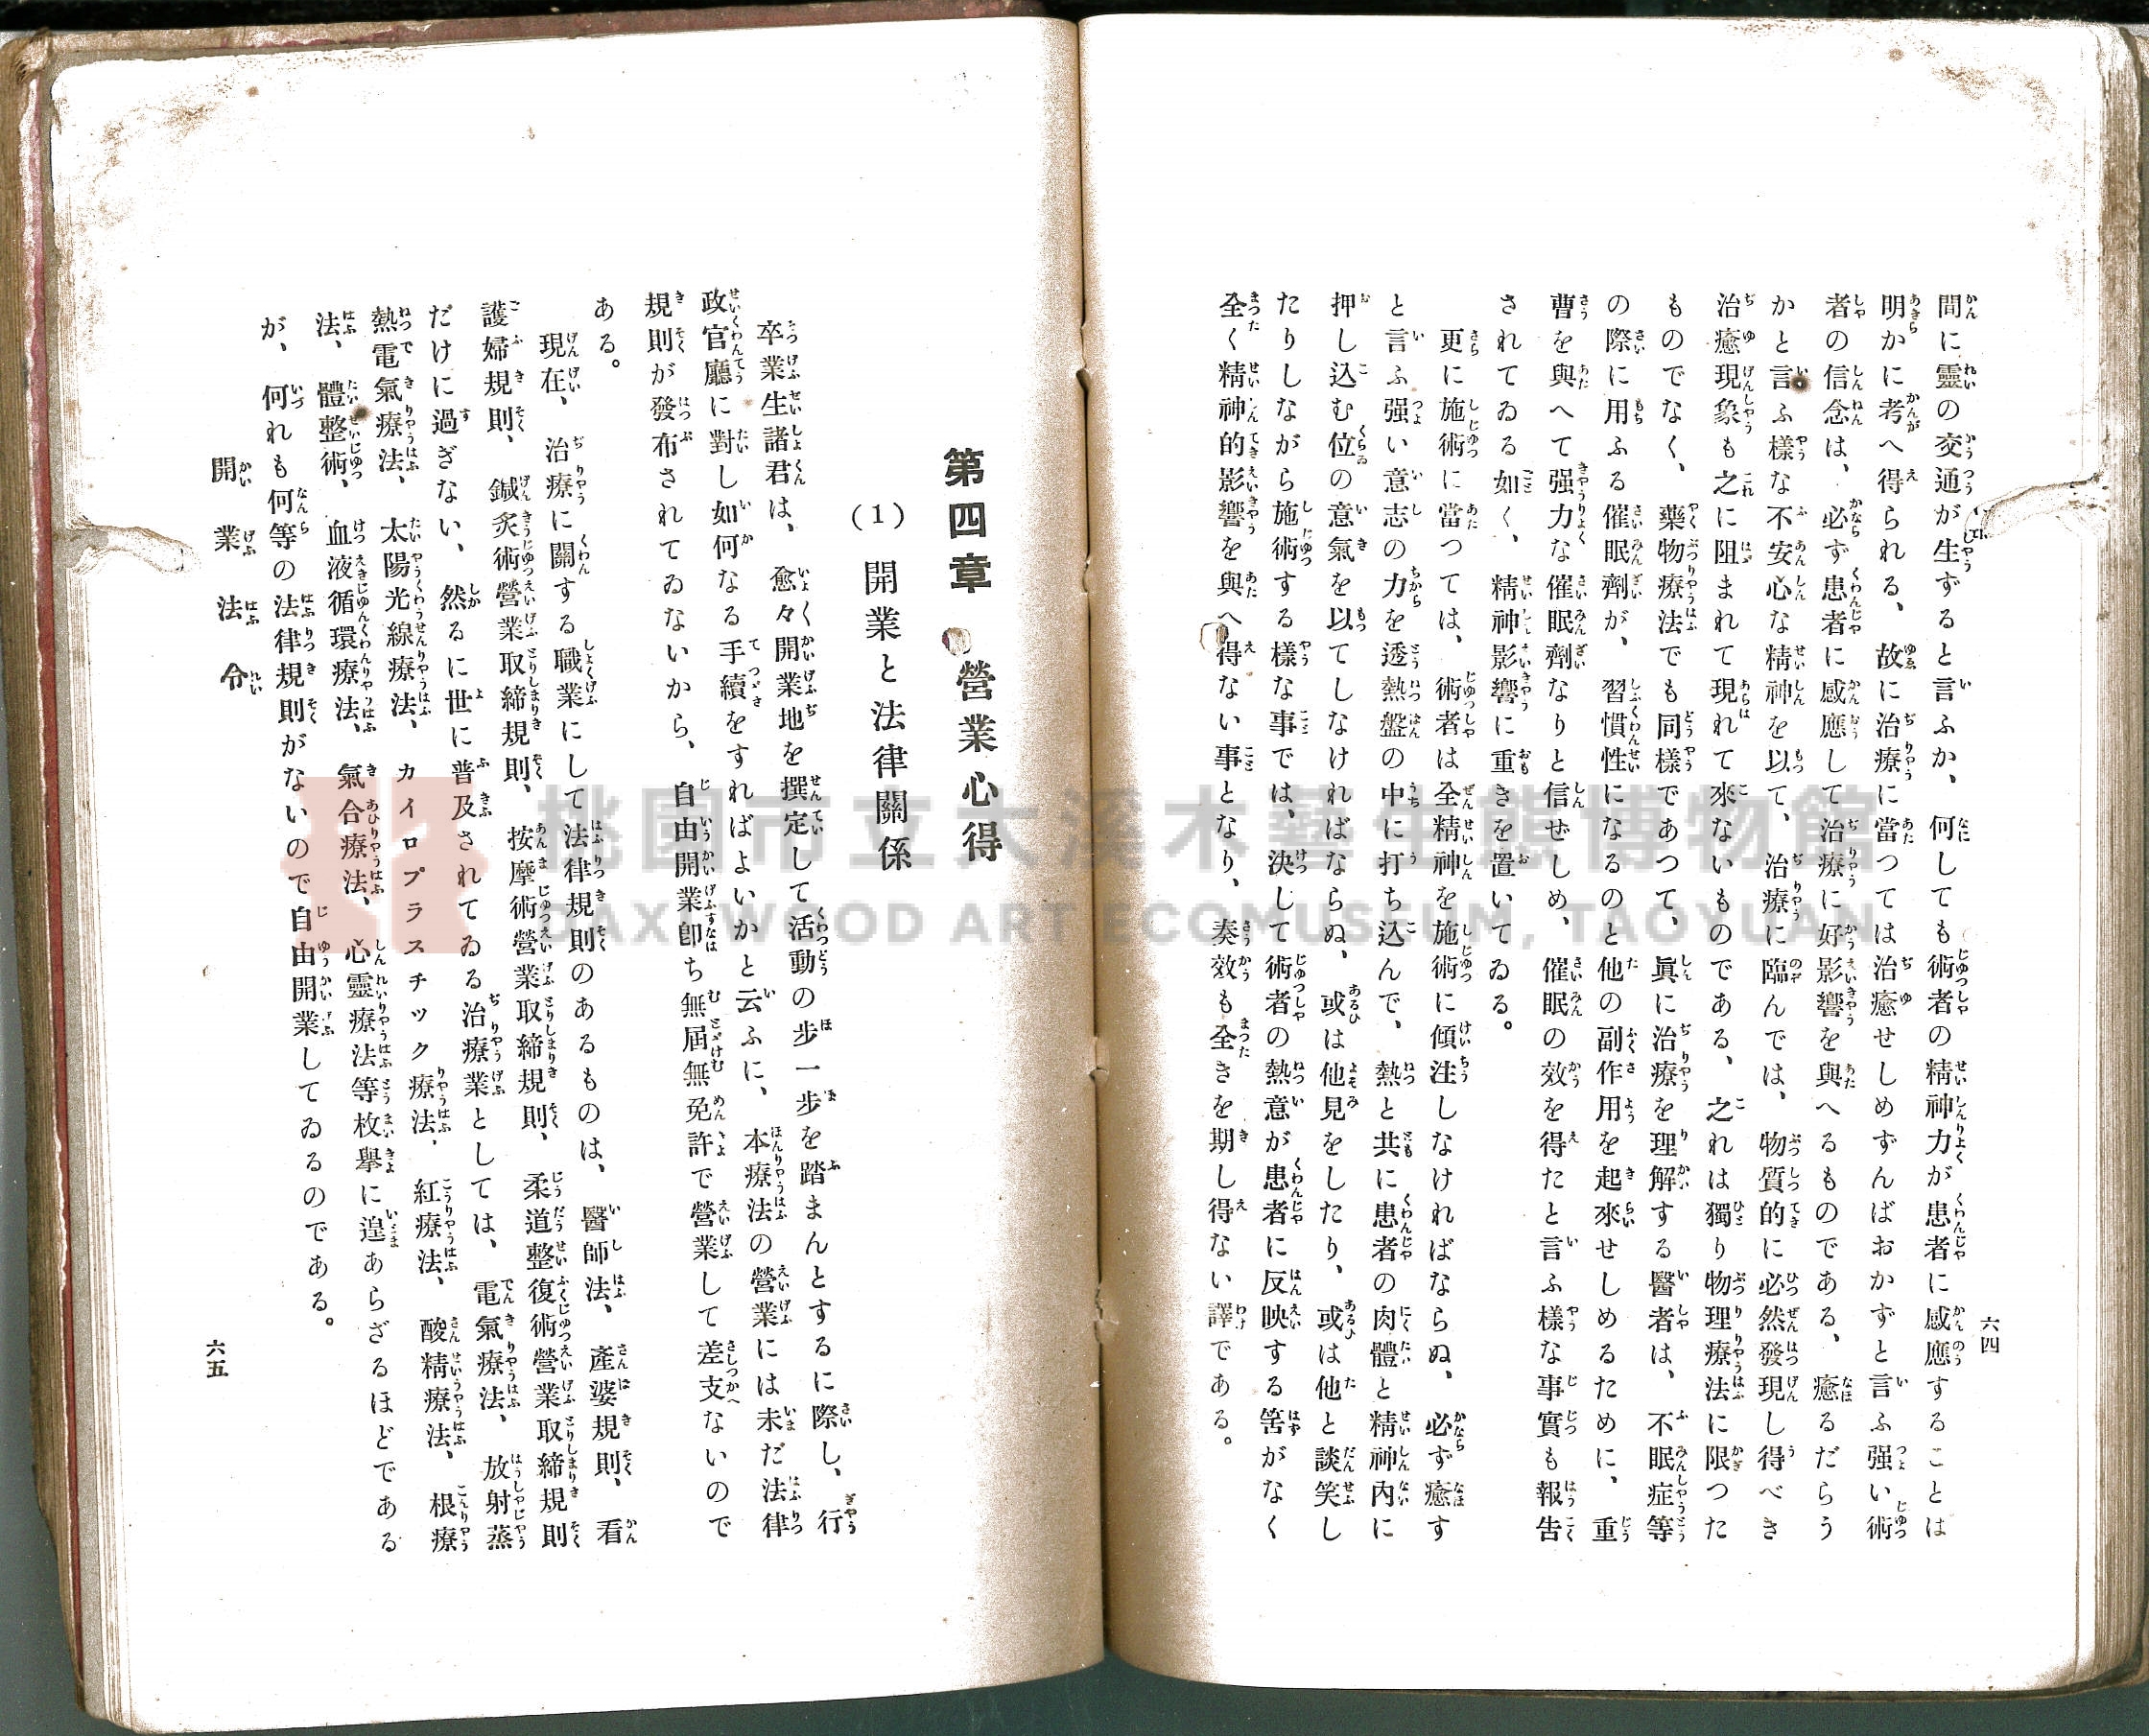 六四
間に靈の交通が生ずると言ふか、何しても術者の精神力が患者に感應することは
明かに考へ得られる、故に治療に當つては治癒せしめずんばおかずと言ふ强い術
者の信念は、必ず患者に感應して治療に好影響を與へるものである、癒るだらう
かと言ふ樣な不安心な精神を以て、治療に臨んでは、物質的に必然發現し得べき
治癒現象も之に阻まれて現れて來ないものである、之れは獨り物理療法に限つた
ものでなく、藥物療法でも同樣であつて、眞に治療を理解する醫者は、不眠症等
の際に用ふる催眠劑が、習慣性になるのと他の副作用を起來せしめるために、重
曹を與へて强力な催眠劑なりと信ぜしめ、催眠の效を得たと言ふ樣な事實も報告
されてゐる如く、精神影響に重きを置いてゐる。
更に施術に當つては、術者は全精神を施術に傾注しなければならぬ、必ず癒す
と言ふ强い意志の力を透熱盤の中に打ち込んで、熱と共に患者の肉體と精神內に
押し込む位の意氣を以てしなければならぬ、或は他見をしたり、或は他と談笑し
たりしながら施術する樣な事では、決して術者の熱意が患者に反映する筈がなく
全く精神的影響を與へ得ない事となり、奏效も全きを期し得ない譯である。
第四章 營業心得
(1) 開業と法律關係
卒業生諸君は、愈々開業地を撰定して活動の步一步を踏まんとするに際し、行
政官廳に對し如何なる手續をすればよいかと云ふに、本療法の營業には未だ法律
規則が發布されてゐないから、自由開業卽ち無屆無免許で營業して差支ないので
ある。
現在、治療に關する職業にして法律規則のあるものは、醫師法、產婆規則、看
護婦規則、鍼灸術營業取締規則、按摩術營業取締規則、柔道整復術營業取締規則
だけに過ぎない、然るに世に普及されてゐる治療業としては、電氣療法、放射蒸
熱電氣療法、太陽光線療法、カイロプラスチック療法、紅療法、酸精療法、根療
法、體整術、血液循環療法、氣合療法、心靈療法等枚擧に遑あらざるほどである
が、何れも何等の法律規則がないので自由開業してゐるのである。
開業法令
六五
桃園市立大溪木藝生態博物館
DAXI WOOD ART ECOMUSEUM, TAOYUAN